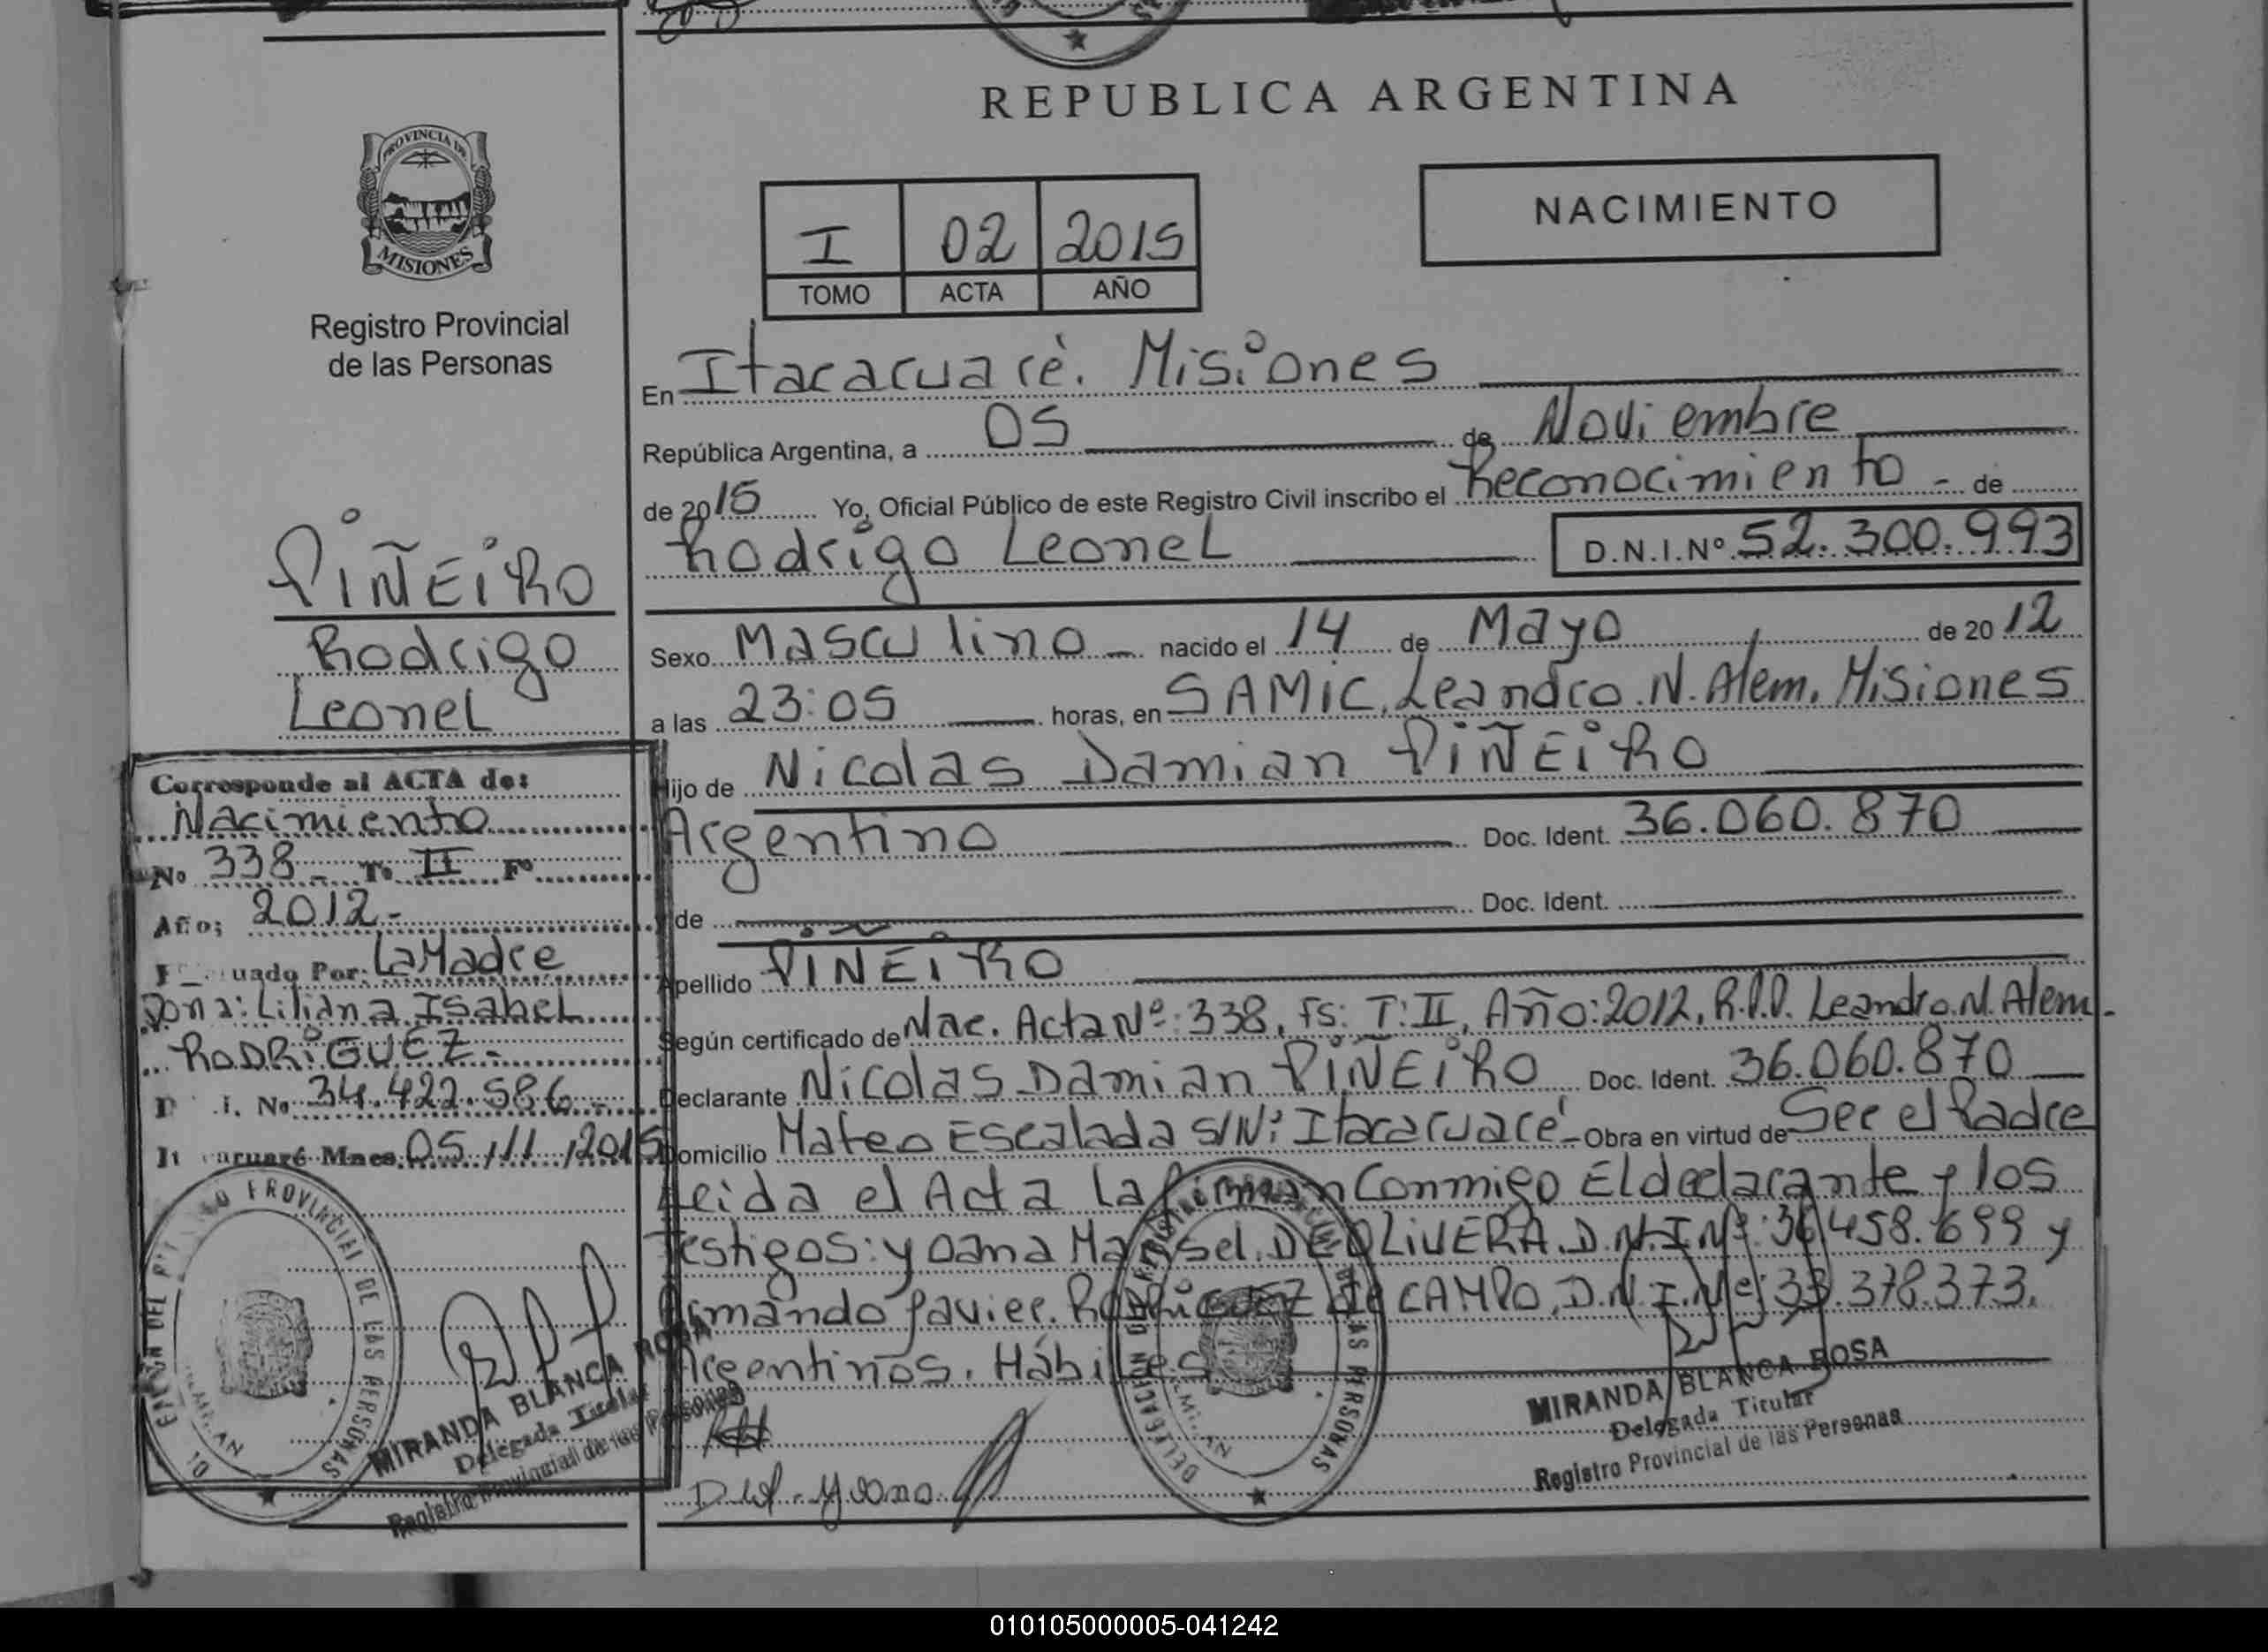 REPUBLICA ARGENTINA
PROVINCIA DE
MISIONES
Registro Provincial
de las Personas
I 02 2015
TOMO ACTA AÑO
NACIMIENTO
En Itacaruaré. Misiones
República Argentina, a 05 de Noviembre
de 2015 Yo, Oficial Público de este Registro Civil inscribo el Reconocimiento - de
Rodrigo Leonel D.N.I.Nº 52.300.993
Sexo Masculino - nacido el 14 de Mayo de 2012
a las 23:05 horas, en SAMIC, Leandro.N.Alem, Misiones
Hijo de Nicolas Damian PIÑEIRO
Argentino Doc. Ident. 36.060.870
y de Doc. Ident.
Apellido PIÑEIRO
Según certificado de Nac. Acta Nº:338, Fs: T:II, Año:2012, R.P.P. Leandro.N.Alem.
Declarante Nicolas Damian PIÑEIRO Doc. Ident. 36.060.870
Domicilio Mateo Escalada S/Nº Itacaruaré - Obra en virtud de Ser el Padre
Leida el Acta la firman Conmigo El declarante y los
Testigos: Yoana DE OLIVERA. D.N.I Nº: 36.458.699 y
Armando Javier. RODRIGUEZ DE CAMPO, D.N.I.Nº: 33.378.373.
Argentinos. Hábiles
Yoana
MIRANDA BLANCA ROSA
Delegada Titular
Registro Provincial de las Personas
PIÑEIRO
Rodrigo
Leonel
Corresponde al ACTA de:
Nacimiento
Nº 338 - Tº II Fº
Año: 2012 -
Por: La Madre
Dona: Liliana Isabel
RODRIGUEZ -
I. Nº 34.422.586 -
Mnes. 05/11/2015
PROVINCIAL DE LAS PERSONAS
MIRANDA BLANCA ROSA
Delegada Titular
Registro Provincial de las Personas
DELEGACION
LAS PERSONAS
010105000005-041242